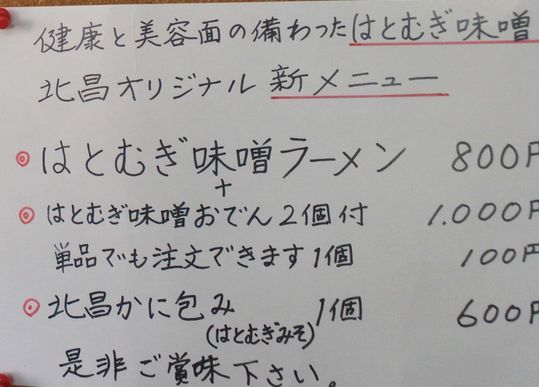 健康と美容面の備わったはとむぎ味噌
北昌オリジナル 新メニュー
◎はとむぎ味噌ラーメン 800円
+
◎はとむぎ味噌おでん2個付 1.000円
単品でも注文できます1個 100円
◎北昌かに包み 1個 600円
(はとむぎみそ)
是非ご賞味下さい。